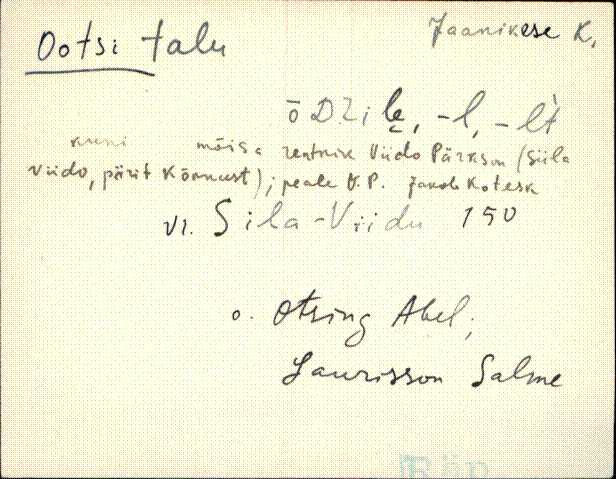 Ootsi talu
Jaanikese k.
ōDži le̮, -l, -lt
kuni mõisa rentnik Viido Pärkson (Siila
Viido, pärit Kõnnust); peale V.P. Jakob Kotesk
vr. Sila-Viidu 150
o. Otsing Abel,
Laurisson Salme
Räp